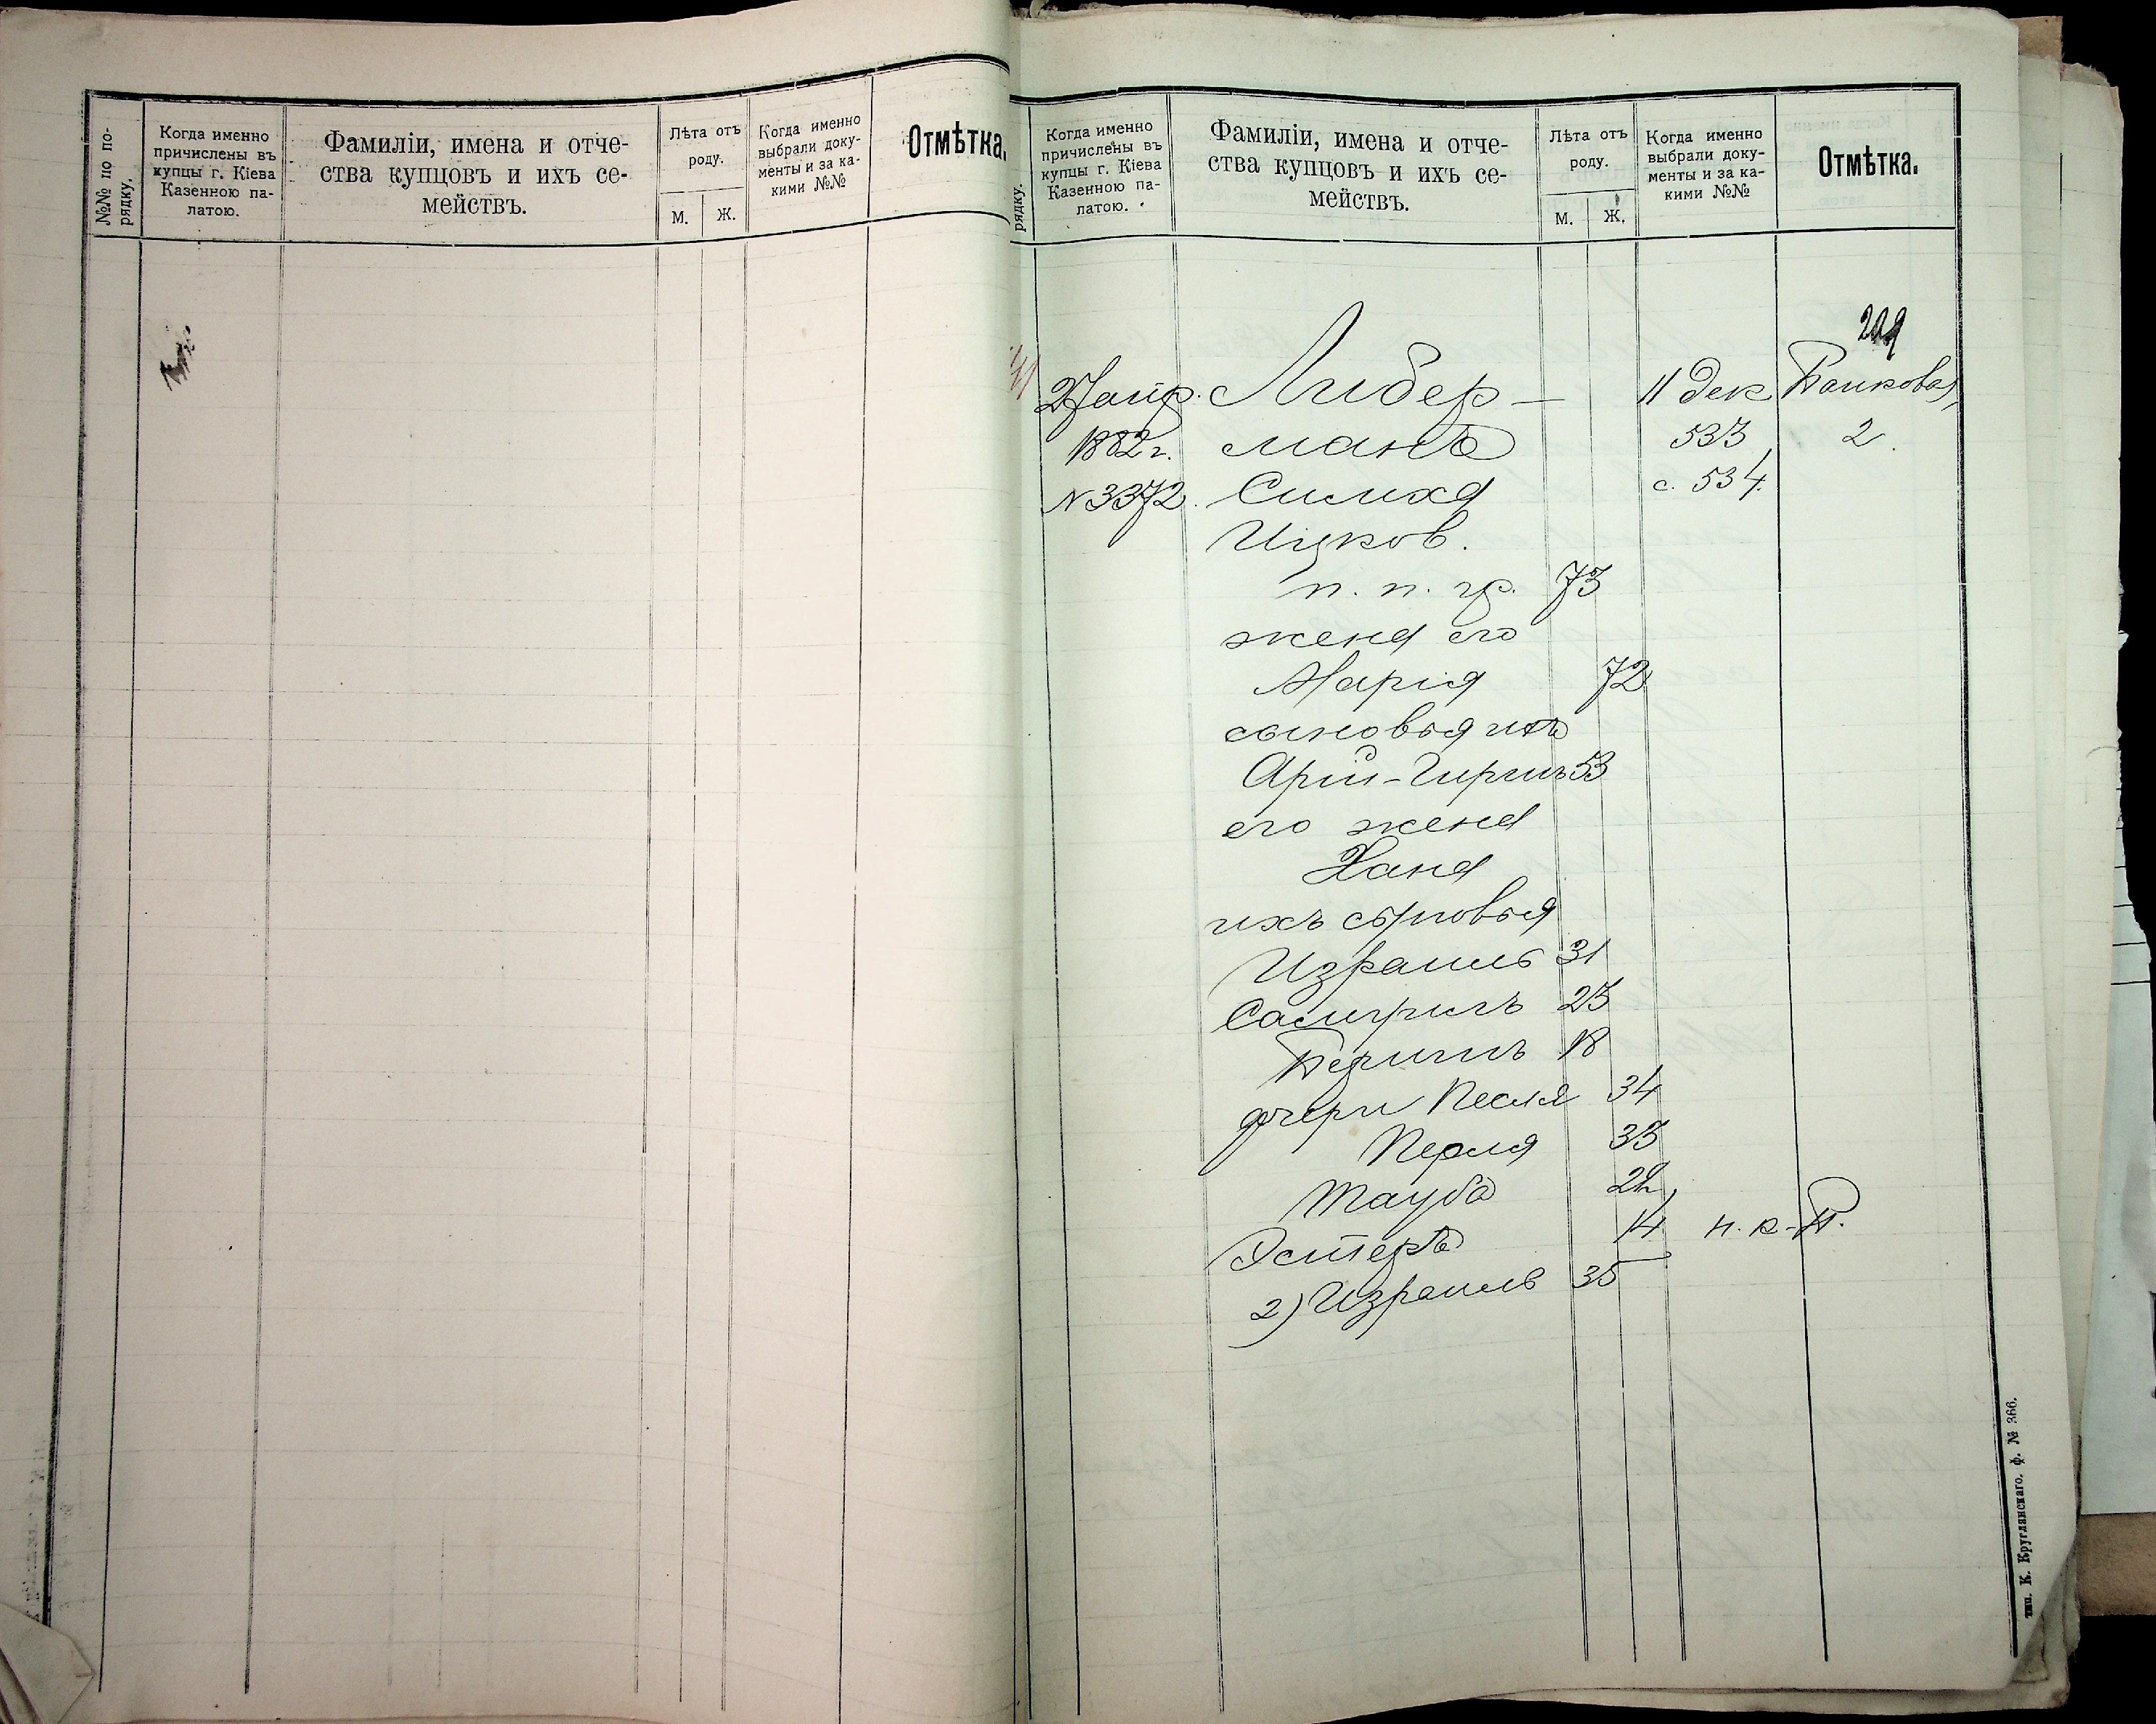 №№ по по-
рядку.
Когда именно
причислены въ
купцы г. Кіева
Казенною па-
латою.
Фамиліи, имена и отче-
ства купцовъ и ихъ се-
мействъ.
Лѣта отъ
роду.
М.
Ж.
Когда именно
выбрали доку-
менты и за ка-
кими №№
Отмѣтка.
рядку.
Когда именно
причислены въ
купцы г. Кіева
Казенною па-
латою.
Фамиліи, имена и отче-
ства купцовъ и ихъ се-
мействъ.
Лѣта отъ
роду.
М.
Ж.
Когда именно
выбрали доку-
менты и за ка-
кими №№
Отмѣтка.
27 апр. Либер- 11 дек Банковая,
1882 г. манъ 533 2
N 3372. Симха с. 534.
Ицков.
п. п. гр. 73
жена его
Марія 72
сыновья ихъ
Арій-Гиршъ 53
его жена
Хана
ихъ сыновья
Израиль 31
Самуилъ 23
18
дчери Песля 34
Перля 33
Тауба
Эстеръ 14 н. к-П.
2) Израиль 35
тип. К. Круглянскаго. ф. № 366.